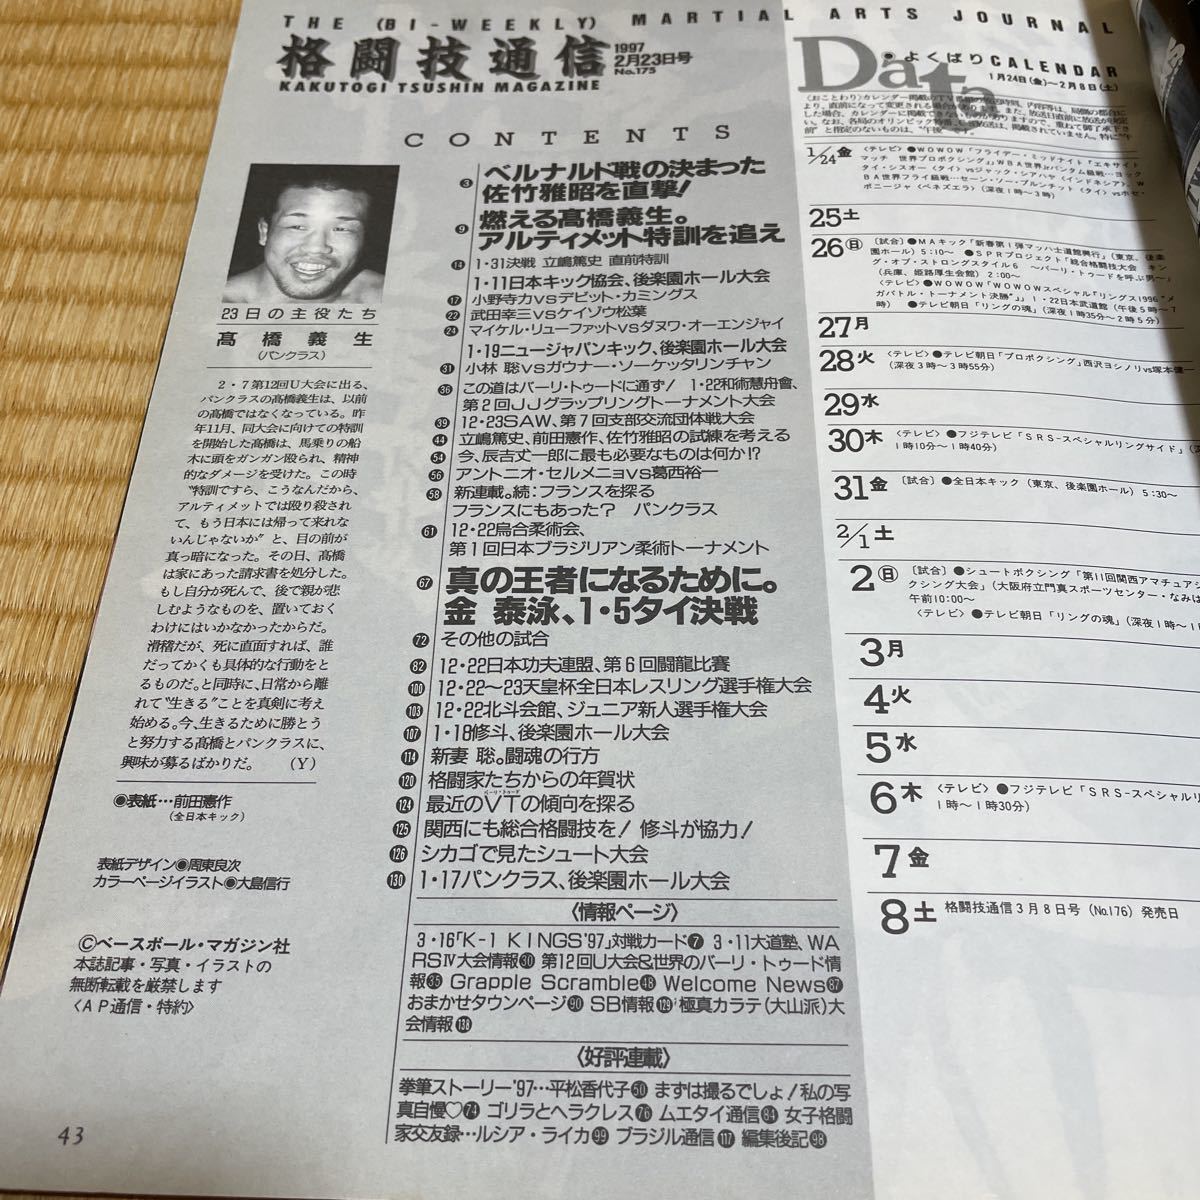 THE (BI-WEEKLY) MARTIAL ARTS JOURNAL
格闘技通信
1997
2月23日号
No.175
KAKUTOGI TSUSHIN MAGAZINE
CONTENTS
23日の主役たち
髙橋義生
(パンクラス)
2・7第12回U大会に出る、
パンクラスの高橋義生は、以前
の高橋ではなくなっている。昨
年11月、同大会に向けての特訓
を開始した高橋は、馬乗りの船
木に頭をガンガン殴られ、精神
的なダメージを受けた。この時
〝特訓ですら、こうなんだから、
アルティメットでは殴り殺され
て、もう日本には帰って来れな
いんじゃないか〟と、目の前が
真っ暗になった。その日、高橋
は家にあった請求書を処分した。
もし自分が死んで、後で親が悲
しむようなものを、置いておく
わけにはいかなかったからだ。
滑稽だが、死に直面すれば、誰
だってかくも具体的な行動をと
るものだ。と同時に、日常から離
れて〝生きる〟ことを真剣に考え
始める。今、生きるために勝とう
と努力する高橋とパンクラスに、
興味が募るばかりだ。 (Y)
◉表紙…前田憲作
(全日本キック)
表紙デザイン◉周東良次
カラーページイラスト◉大島信行
©ベースボール・マガジン社
本誌記事・写真・イラストの
無断転載を厳禁します
〈AP通信・特約〉
43
3 ベルナルド戦の決まった
佐竹雅昭を直撃!
9 燃える髙橋義生。
アルティメット特訓を追え
14 1・31決戦 立嶋篤史 直前特訓
1・11日本キック協会、後楽園ホール大会
17 小野寺力vsデビット・カミングス
22 武田幸三vsケイゾウ松葉
24 マイケル・リューファットvsダヌワ・オーエンジャイ
1・19ニュージャパンキック、後楽園ホール大会
31 小林 聡vsガウナー・ソーケッタリンチャン
36 この道はバーリ・トゥードに通ず! 1・22和術慧舟會、
第2回JJグラップリングトーナメント大会
39 12・23SAW、第7回支部交流団体戦大会
44 立嶋篤史、前田憲作、佐竹雅昭の試練を考える
54 今、辰吉丈一郎に最も必要なものは何か!?
56 アントニオ・セルメニョvs葛西裕一
58 新連載。続:フランスを探る
フランスにもあった? パンクラス
61 12・22烏合柔術会、
第1回日本ブラジリアン柔術トーナメント
67 真の王者になるために。
金 泰泳、1・5タイ決戦
72 その他の試合
82 12・22日本功夫連盟、第6回闘龍比賽
100 12・22〜23天皇杯全日本レスリング選手権大会
103 12・22北斗会館、ジュニア新人選手権大会
107 1・18修斗、後楽園ホール大会
114 新妻 聡。闘魂の行方
120 格闘家たちからの年賀状
124 最近のVTの傾向を探る
バーリ・トゥード
125 関西にも総合格闘技を! 修斗が協力!
126 シカゴで見たシュート大会
130 1・17パンクラス、後楽園ホール大会
〈情報ページ〉
3・16「K-1 KINGS'97」対戦カード7 3・11大道塾、WA
RSⅣ大会情報30 第12回U大会&世界のバーリ・トゥード情
報35 Grapple Scramble48 Welcome News87
おまかせタウンページ90 SB情報129 極真カラテ(大山派)大
会情報138
〈好評連載〉
拳筆ストーリー'97…平松香代子50 まずは撮るでしょ!私の写
真自慢♡74 ゴリラとヘラクレス76 ムエタイ通信84 女子格闘
家交友録…ルシア・ライカ99 ブラジル通信117 編集後記98
Data
●よくばりCALENDAR
1月24日(金)〜2月8日(土)
〈おことわり〉カレンダー掲載のTV番組の放送時刻、内容等は、局側の都合に
より、直前になって変更される場合があります。
1/24金 〈テレビ〉●WOWOW「フライデー・ミッドナイト『エキサイト
マッチ 世界プロボクシング』」
25土
26日 〔試合〕●MAキック「新春第1弾マッハ士道館興行」(東京、後楽
園ホール) 5:10〜 ●SPRプロジェクト「総合格闘技大会 キン
グ・オブ・ストロングスタイル6 〜バーリ・トゥードを呼ぶ男〜」
(兵庫、姫路厚生会館) 2:00〜
〈テレビ〉●WOWOW「WOWOWスペシャル『リングス1996“メ
ガバトル・トーナメント決勝”』」1・22日本武道館 (午後5時〜7
時) ●テレビ朝日「リングの魂」(深夜1時35分〜2時5分)
27月
28火 〈テレビ〉●テレビ朝日「プロボクシング」西沢ヨシノリvs塚本健一
(深夜3時〜3時55分)
29水
30木 〈テレビ〉●フジテレビ「SRS-スペシャルリングサイド」
1時10分〜1時40分)
31金 〔試合〕●全日本キック (東京、後楽園ホール) 5:30〜
2/1土
2日 〔試合〕●シュートボクシング「第11回関西アマチュア
クシング大会」(大阪府立門真スポーツセンター・なみは
午前10:00〜
〈テレビ〉●テレビ朝日「リングの魂」(深夜1時〜1
3月
4火
5水
6木 〈テレビ〉●フジテレビ「SRS-スペシャルリン
1時〜1時30分)
7金
8土 格闘技通信3月8日号 (No.176) 発売日